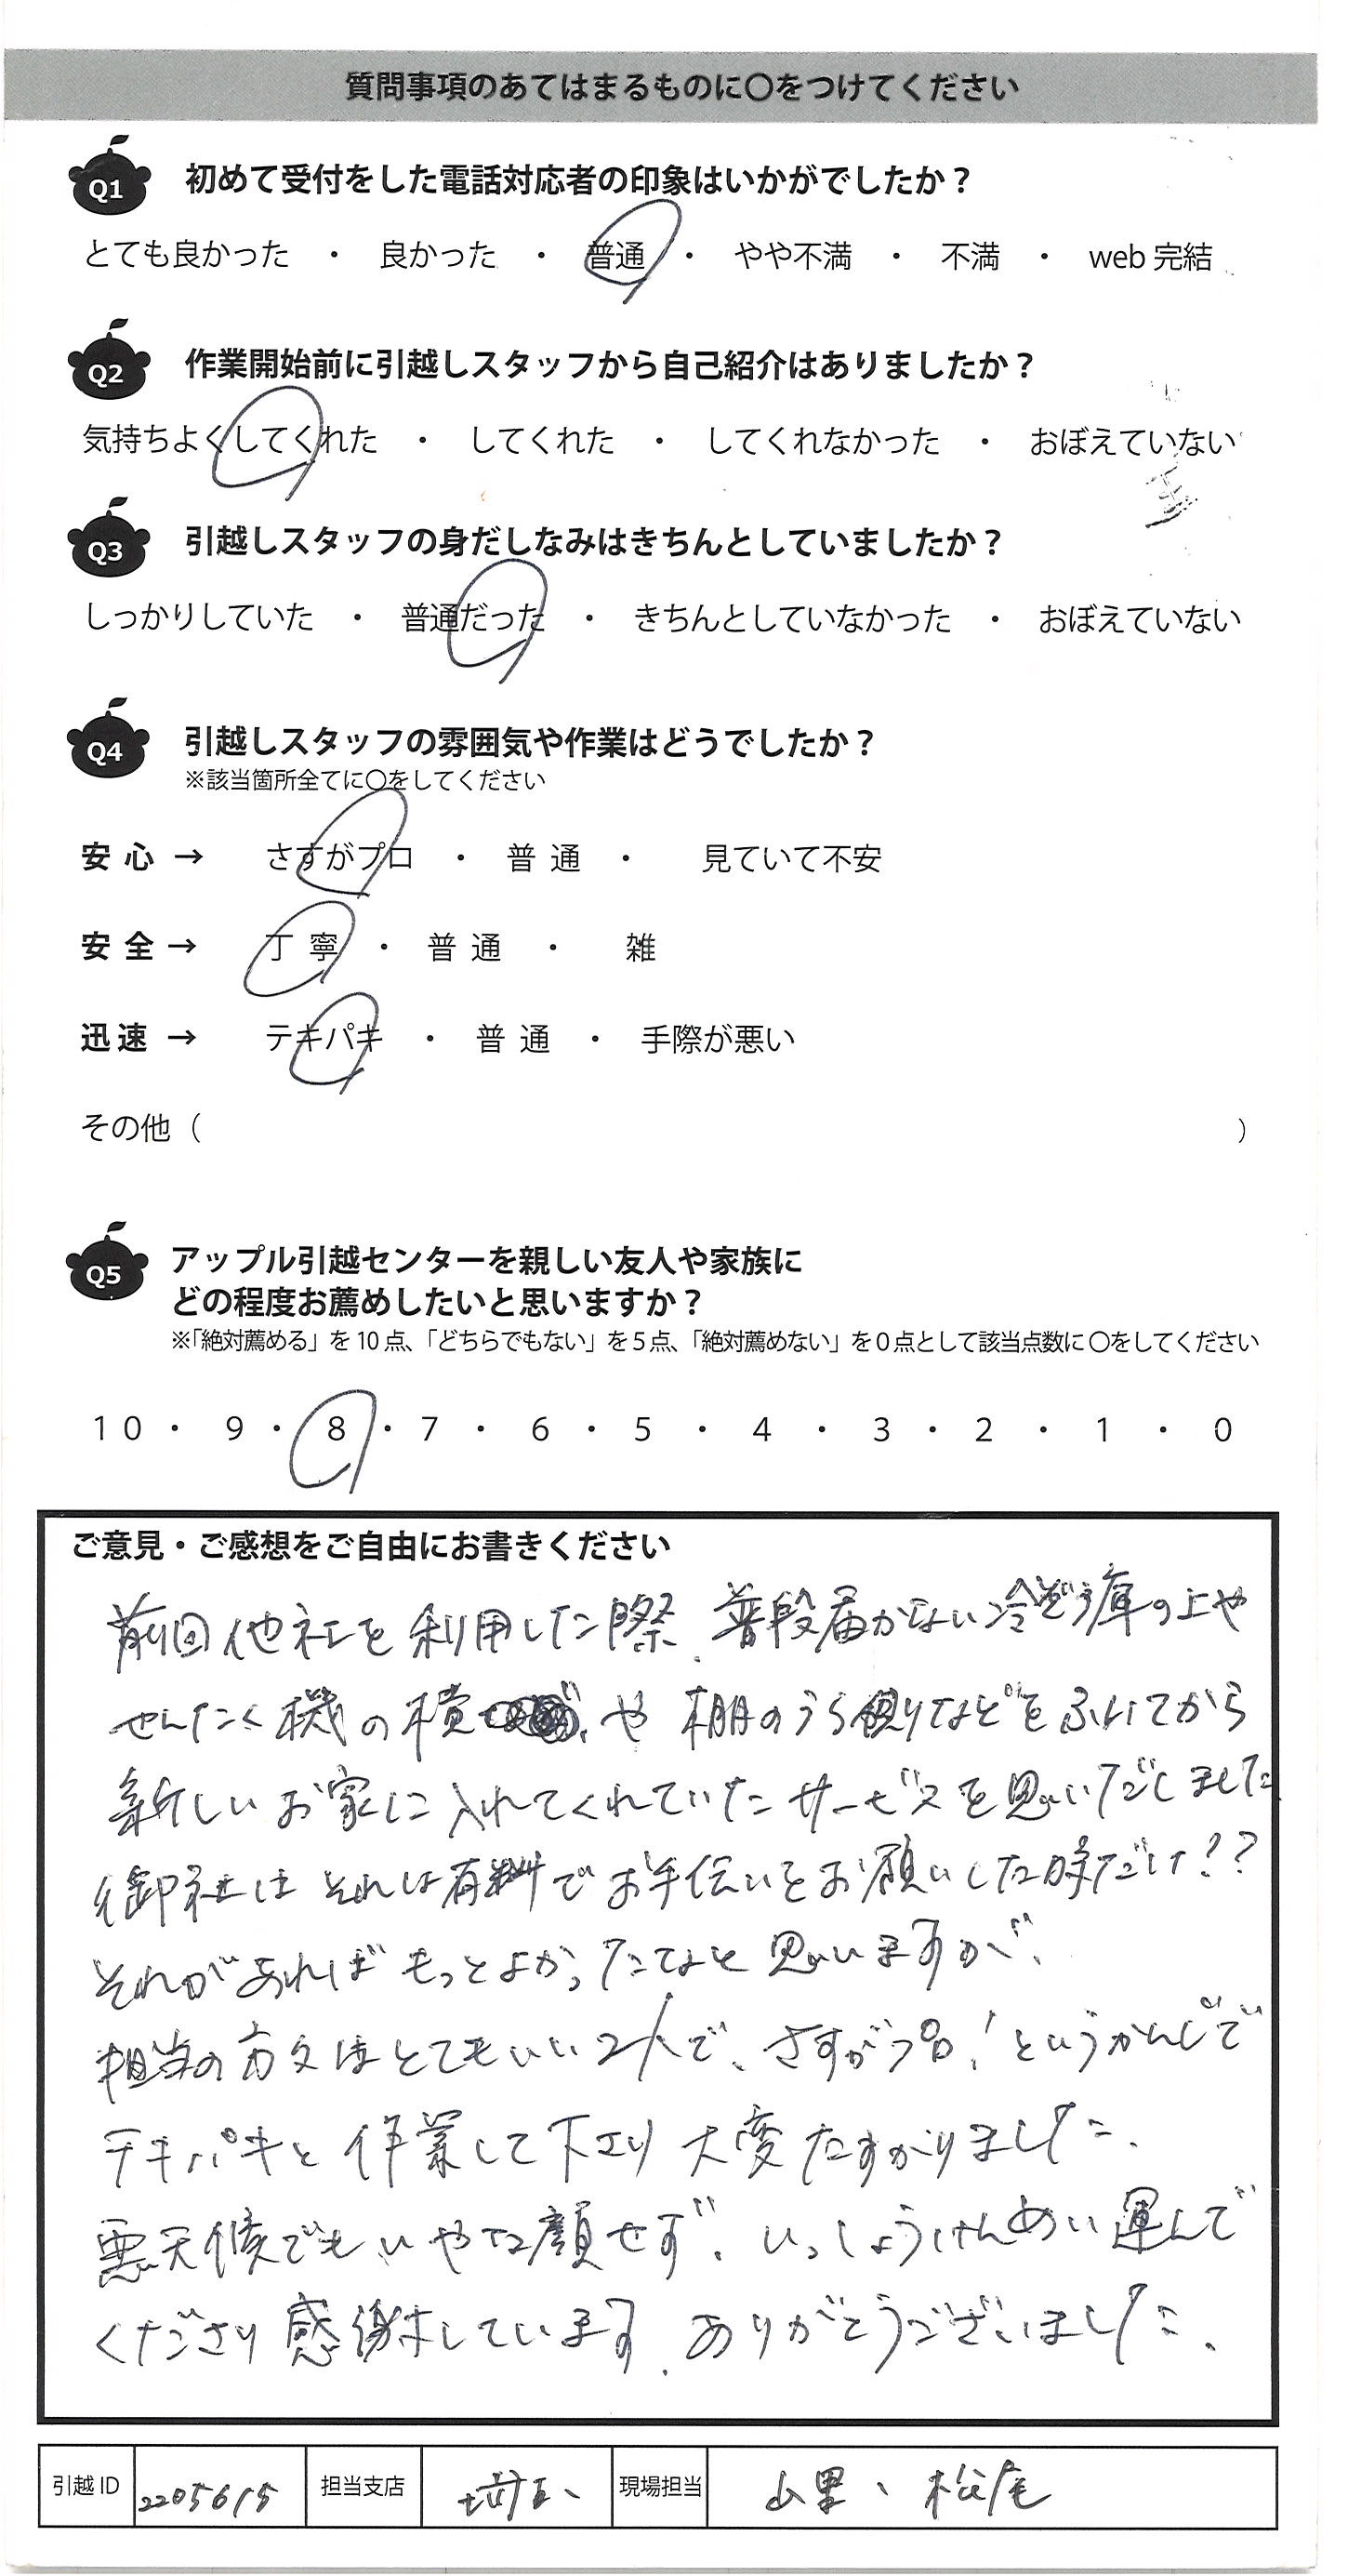 質問事項のあてはまるものに〇をつけてください
Q1 初めて受付をした電話対応者の印象はいかがでしたか？
とても良かった ・ 良かった ・ 普通 ・ やや不満 ・ 不満 ・ web 完結
Q2 作業開始前に引越しスタッフから自己紹介はありましたか？
気持ちよくしてくれた ・ してくれた ・ してくれなかった ・ おぼえていない
Q3 引越しスタッフの身だしなみはきちんとしていましたか？
しっかりしていた ・ 普通だった ・ きちんとしていなかった ・ おぼえていない
Q4 引越しスタッフの雰囲気や作業はどうでしたか？
※該当箇所全てに〇をしてください
安心 → さすがプロ ・ 普通 ・ 見ていて不安
安全 → 丁寧 ・ 普通 ・ 雑
迅速 → テキパキ ・ 普通 ・ 手際が悪い
その他（ ）
Q5 アップル引越センターを親しい友人や家族に
どの程度お薦めしたいと思いますか？
※「絶対薦める」を10点、「どちらでもない」を5点、「絶対薦めない」を0点として該当点数に〇をしてください
10 ・ 9 ・ 8 ・ 7 ・ 6 ・ 5 ・ 4 ・ 3 ・ 2 ・ 1 ・ 0
ご意見・ご感想をご自由にお書きください
前回他社を利用した際、普段届かない冷ぞう庫の上や
せんたく機の横、や棚のうら側りなどをふいてから
新しいお家に入れてくれていたサービスを思いだしました
御社はそれは有料でお手伝いをお願いした時だけ！？
それがあればもっとよかったなと思いますが、
担当の方々はとてもいい2人で、さすがプロ！というかんじで
テキパキと作業して下さり大変たすかりました、
悪天候でもいやな顔せず、いっしょうけんめい運んで
くださり感謝しています、ありがとうございました、
引越ID 2205615 担当支店 現場担当 山里、松尾